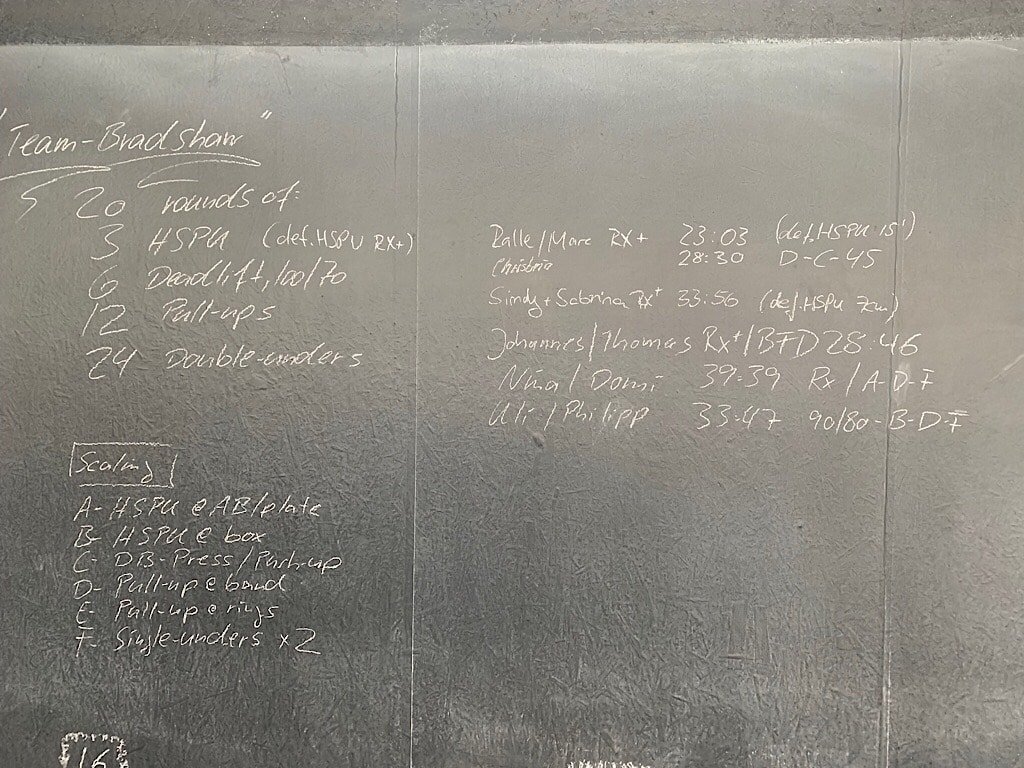 "Team-Bradshaw"
20 rounds of:
3 HSPU (def. HSPU RX+)
6 Deadlift, 100/70
12 Pull-ups
24 Double-unders
Scaling
A- HSPU @ AB/plate
B- HSPU @ box
C- DB-Press/Push-up
D- Pull-up @ band
E- Pull-up @ rings
F- Single-unders x2
Ralle/Marc RX+ 23:03 (def. HSPU 15')
Christin 28:30 D-C-45
+ Sabrina RX+ 33:56 (def. HSPU 7cm)
Johannes/Thomas Rx+/BFD 28:46
Nina/Domi 39:39 Rx/A-D-F
Uli/Philipp 33:47 90/80-B-D-F
16